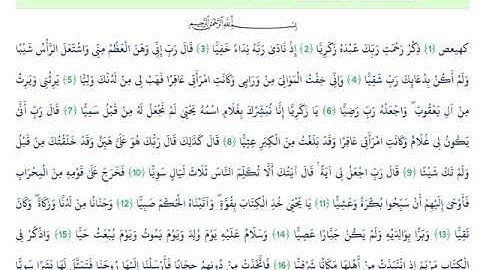 بسم الله الرحمن الرحيم
كهيعص (1) ذِكْرُ رَحْمَتِ رَبِّكَ عَبْدَهُ زَكَرِيَّا (2) إِذْ نَادَى رَبَّهُ نِدَاءً خَفِيًّا (3) قَالَ رَبِّ إِنِّي وَهَنَ الْعَظْمُ مِنِّي وَاشْتَعَلَ الرَّأْسُ شَيْبًا
وَلَمْ أَكُنْ بِدُعَائِكَ رَبِّ شَقِيًّا (4) وَإِنِّي خِفْتُ الْمَوَالِيَ مِنْ وَرَائِي وَكَانَتِ امْرَأَتِي عَاقِرًا فَهَبْ لِي مِنْ لَدُنْكَ وَلِيًّا (5) يَرِثُنِي وَيَرِثُ
مِنْ آلِ يَعْقُوبَ ۖ وَاجْعَلْهُ رَبِّ رَضِيًّا (6) يَا زَكَرِيَّا إِنَّا نُبَشِّرُكَ بِغُلَامٍ اسْمُهُ يَحْيَى لَمْ نَجْعَلْ لَهُ مِنْ قَبْلُ سَمِيًّا (7) قَالَ رَبِّ أَنَّى
يَكُونُ لِي غُلَامٌ وَكَانَتِ امْرَأَتِي عَاقِرًا وَقَدْ بَلَغْتُ مِنَ الْكِبَرِ عِتِيًّا (8) قَالَ كَذَلِكَ قَالَ رَبُّكَ هُوَ عَلَيَّ هَيِّنٌ وَقَدْ خَلَقْتُكَ مِنْ قَبْلُ
وَلَمْ تَكُ شَيْئًا (9) قَالَ رَبِّ اجْعَلْ لِي آيَةً ۚ قَالَ آيَتُكَ أَلَّا تُكَلِّمَ النَّاسَ ثَلَاثَ لَيَالٍ سَوِيًّا (10) فَخَرَجَ عَلَى قَوْمِهِ مِنَ الْمِحْرَابِ
فَأَوْحَى إِلَيْهِمْ أَنْ سَبِّحُوا بُكْرَةً وَعَشِيًّا (11) يَا يَحْيَى خُذِ الْكِتَابَ بِقُوَّةٍ ۖ وَآتَيْنَاهُ الْحُكْمَ صَبِيًّا (12) وَحَنَانًا مِنْ لَدُنَّا وَزَكَاةً ۖ وَكَانَ
تَقِيًّا (13) وَبَرًّا بِوَالِدَيْهِ وَلَمْ يَكُنْ جَبَّارًا عَصِيًّا (14) وَسَلَامٌ عَلَيْهِ يَوْمَ وُلِدَ وَيَوْمَ يَمُوتُ وَيَوْمَ يُبْعَثُ حَيًّا (15) وَاذْكُرْ فِي
الْكِتَابِ مَرْيَمَ إِذِ انْتَبَذَتْ مِنْ أَهْلِهَا مَكَانًا شَرْقِيًّا (16) فَاتَّخَذَتْ مِنْ دُونِهِمْ حِجَابًا فَأَرْسَلْنَا إِلَيْهَا رُوحَنَا فَتَمَثَّلَ لَهَا بَشَرًا سَوِيًّا